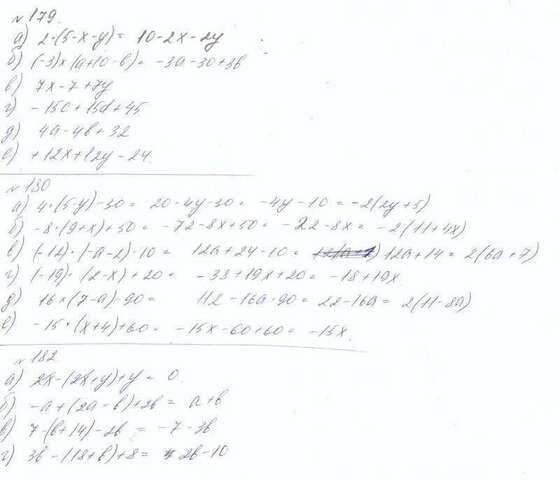 № 179.
а) 2·(5-x-y)= 10-2x-2y
б) (-3)×(a+10-b)= -3a-30+3b
в) 7x-7+7y
г) -15c+15d+45
д) 4a-4b+32
е) +12x+12y-24
№ 180
а) 4·(5-y)-30= 20-4y-30= -4y-10=-2(2y+5)
б) -8·(9+x)+50= -72-8x+50= -22-8x= -2(11+4x)
в) (-12)·(-a-2)-10= 12a+24-10= 12a+14= 2(6a+7)
г) (-19)·(2-x)+20= -38+19x+20= -18+19x
д) 16×(7-a)-90= 112-16a-90= 22-16a= 2(11-8a)
е) -15·(x+4)+60= -15x-60+60= -15x.
№ 182
а) 2x-(2x+y)+y= 0.
б) -a+(2a-b)+2b= a+b
в) 7-(b+14)-2b= -7-3b
г) 3b-(18+b)+8= 2b-10